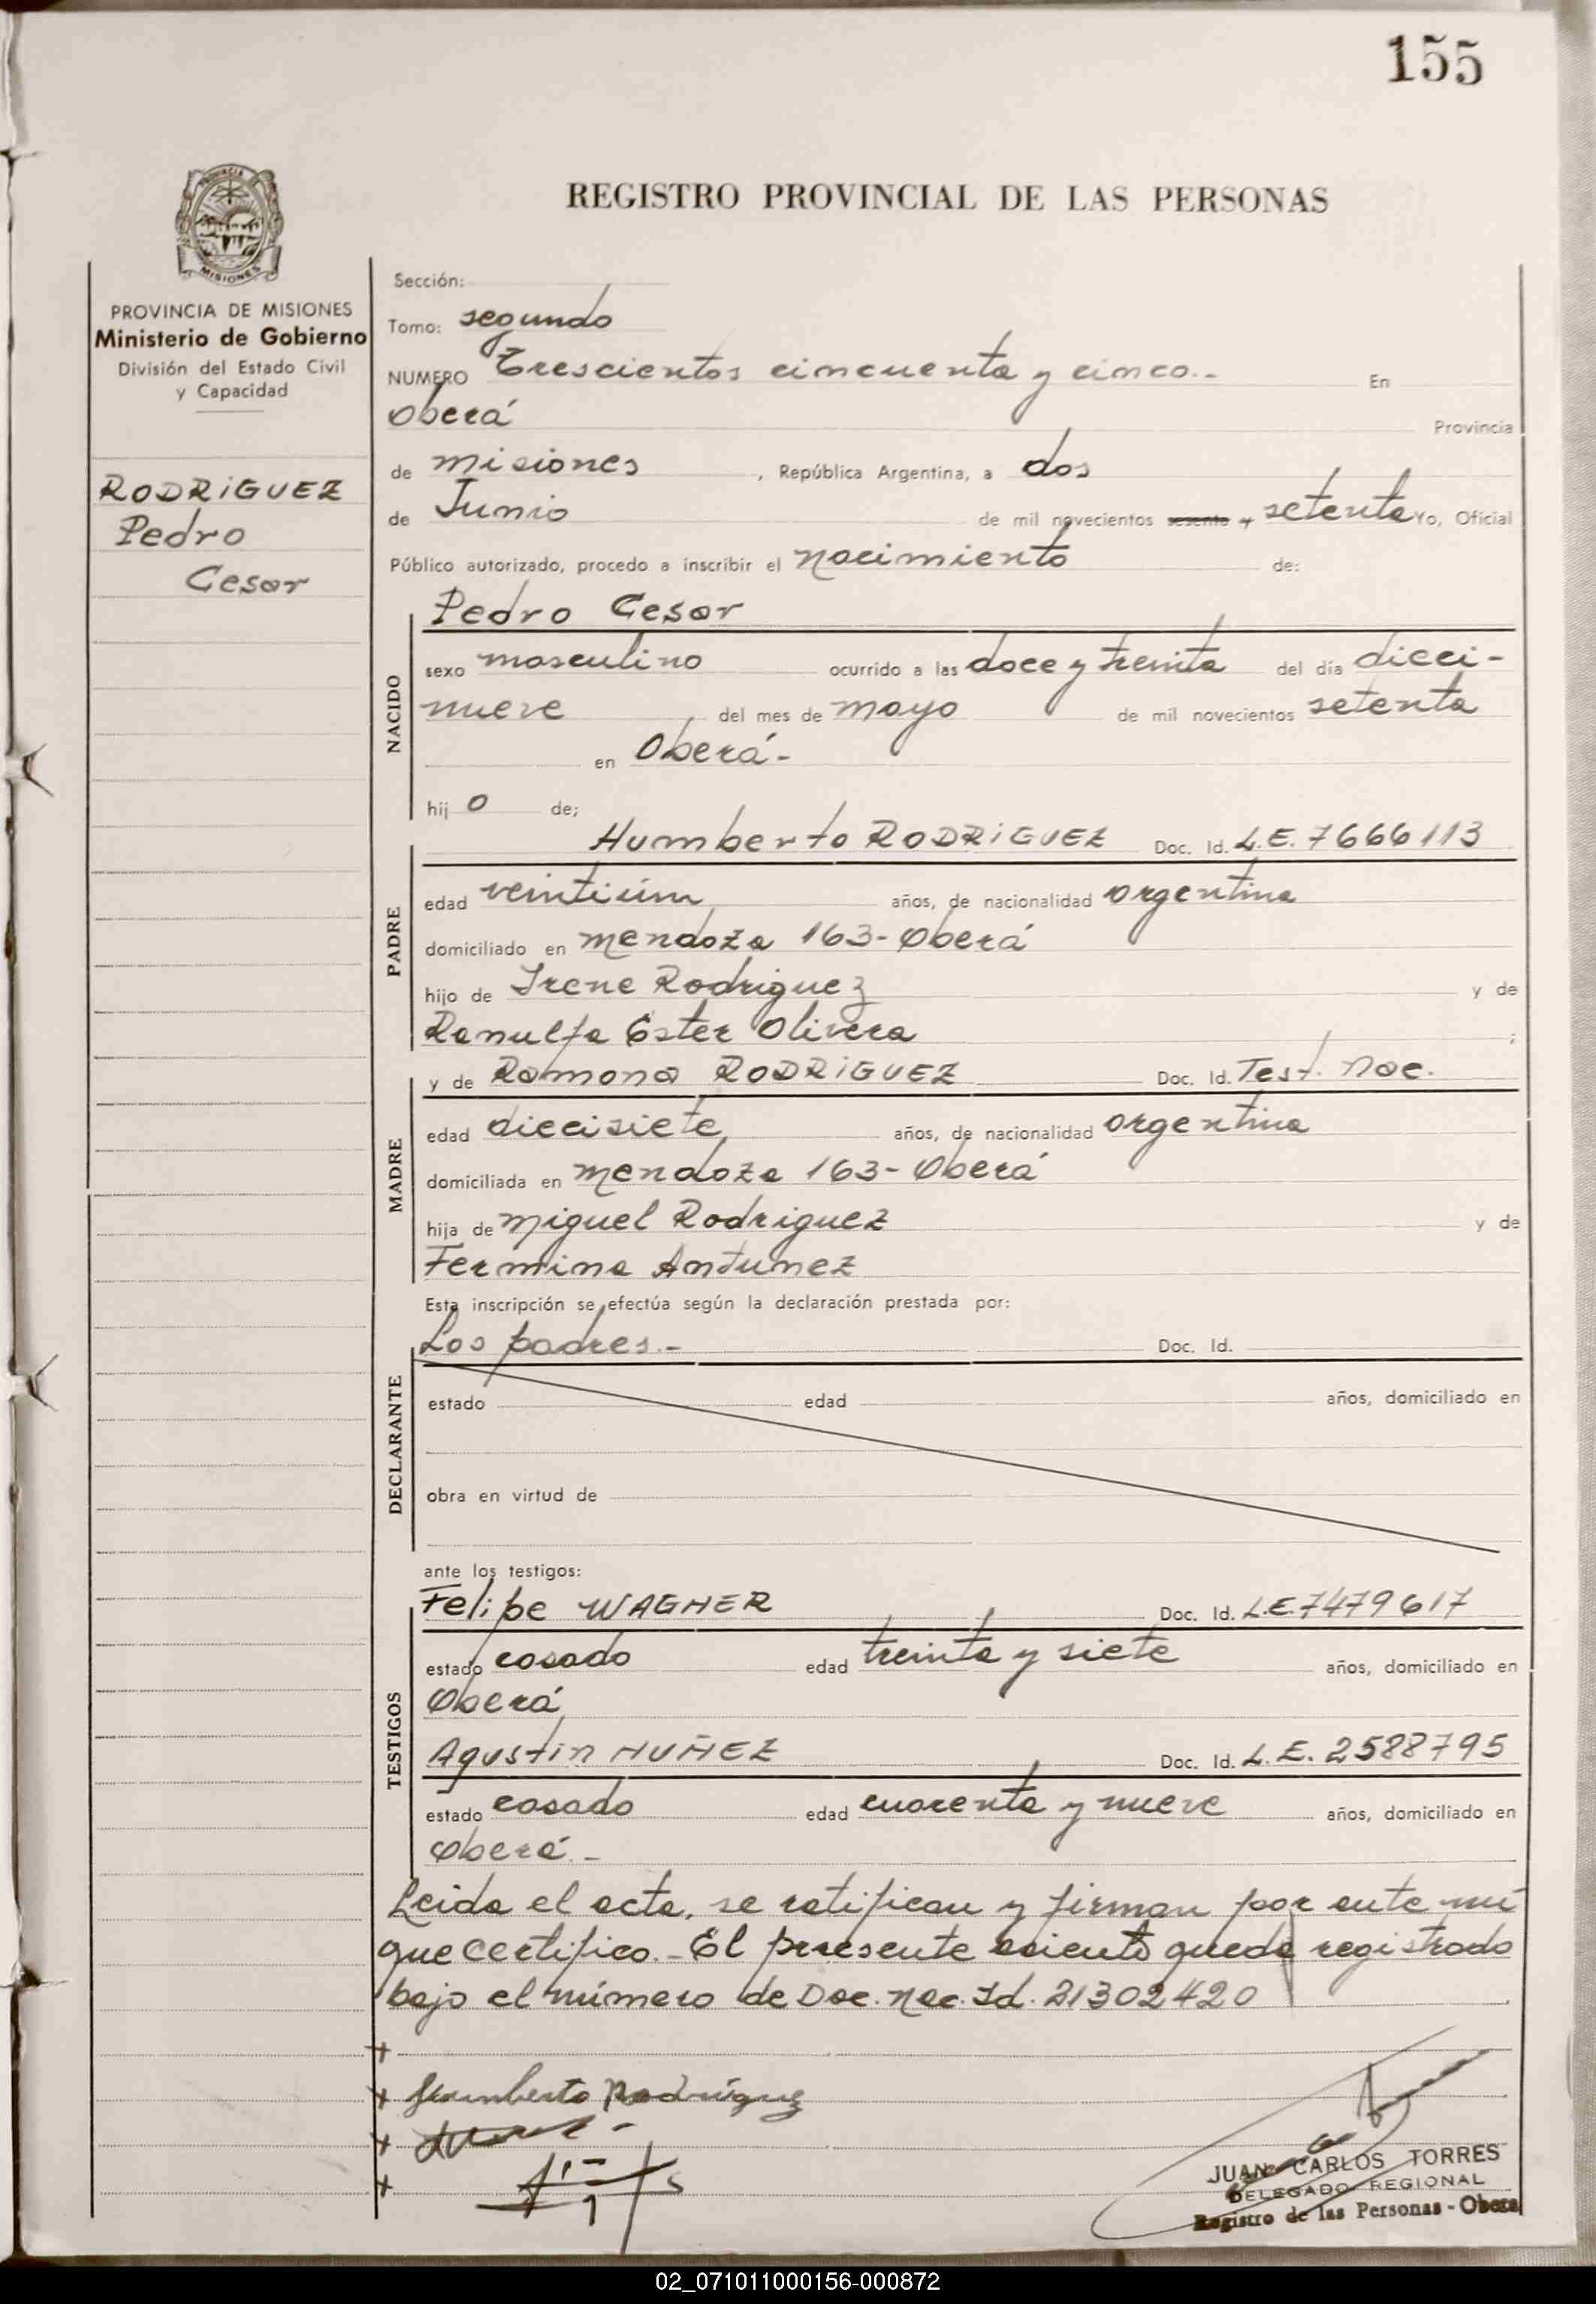 155
PROVINCIA
MISIONES
REGISTRO PROVINCIAL DE LAS PERSONAS
PROVINCIA DE MISIONES
Ministerio de Gobierno
División del Estado Civil
y Capacidad
RODRIGUEZ
Pedro
Cesar
Sección:
Tomo: segundo
NUMERO Trescientos cincuenta y cinco.- En
Oberá Provincia
de Misiones, República Argentina, a dos
de Junio de mil novecientos sesenta y setenta Yo, Oficial
Público autorizado, procedo a inscribir el nacimiento de:
Pedro Cesar
NACIDO
sexo masculino ocurrido a las doce y treinta del día dieci-
nueve del mes de mayo de mil novecientos setenta
en Oberá-
hij o de;
Humberto RODRIGUEZ Doc. Id. L.E. 7666113
PADRE
edad veintiún años, de nacionalidad argentina
domiciliado en Mendoza 163-Oberá
hijo de Irene Rodriguez y de
Ranulfa Ester Olivera ;
y de Ramona RODRIGUEZ Doc. Id. Test. Nac.
MADRE
edad diecisiete años, de nacionalidad argentina
domiciliada en Mendoza 163-Oberá
hija de Miguel Rodriguez y de
Fermina Antunez
Esta inscripción se efectúa según la declaración prestada por:
Los padres.- Doc. Id.
DECLARANTE
estado edad años, domiciliado en
obra en virtud de
ante los testigos:
Felipe WAGNER Doc. Id. L.E. 7479617
TESTIGOS
estado casado edad treinta y siete años, domiciliado en
Oberá
Agustin NUÑEZ Doc. Id. L.E. 2588795
estado casado edad cuarenta y nueve años, domiciliado en
Oberá.-
Leida el acta, se ratifican y firman por ante mí
que certifico.- El presente asiento queda registrado
bajo el número de Doc. Nac. Id. 21302420
Humberto Rodriguez
JUAN CARLOS TORRES
DELEGADO REGIONAL
Registro de las Personas - Obera
02_071011000156-000872